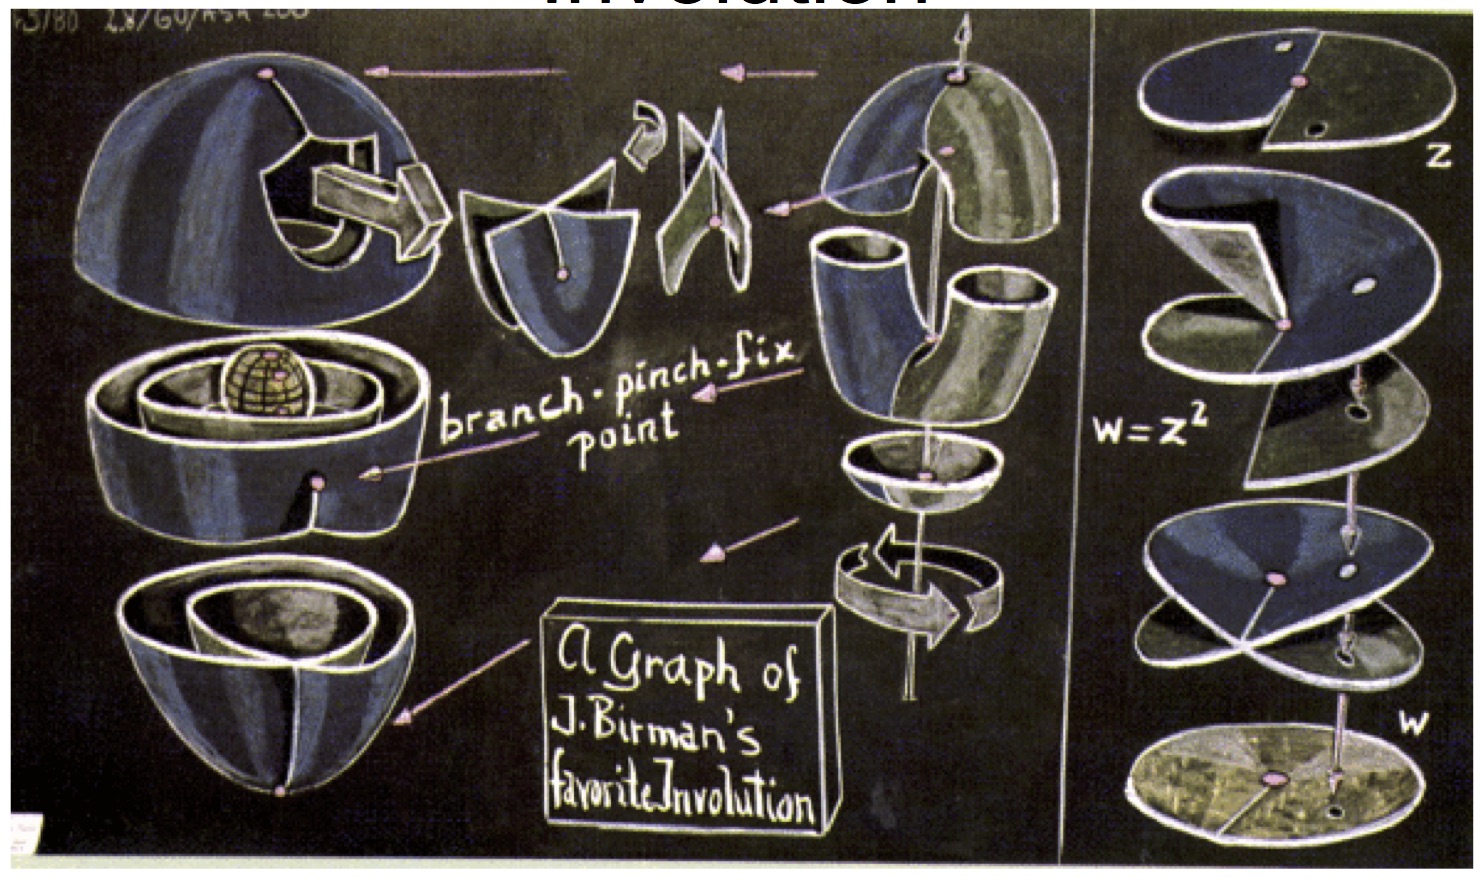 branch-pinch-fix
point
A Graph of
J. Birman's
favorite Involution
z
w=z²
w